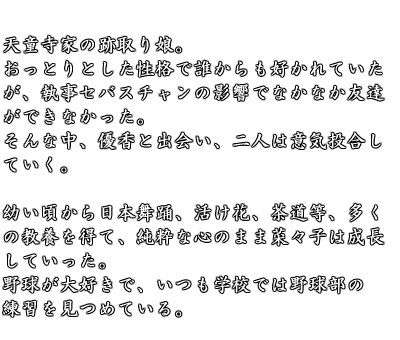 天童寺家の跡取り娘。
おっとりとした性格で誰からも好かれていた
が、執事セバスチャンの影響でなかなか友達
ができなかった。
そんな中、優香と出会い、二人は意気投合し
ていく。
幼い頃から日本舞踊、活け花、茶道等、多く
の教養を得て、純粋な心のまま菜々子は成長
していった。
野球が大好きで、いつも学校では野球部の
練習を見つめている。